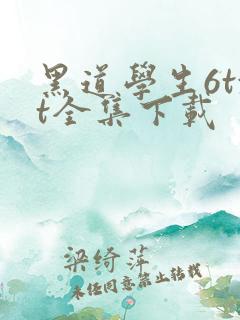 黑道學生6tx
t全集下載
梁绮萍
未经同意禁止转载